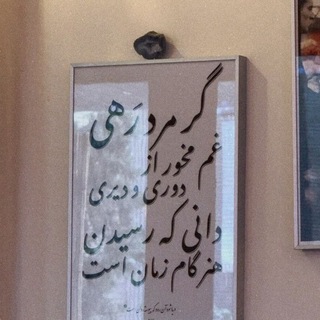 گر مرد رَهی
غم مخور از
دوری و دیری
دانی که رسیدن
هنر گام زمان است